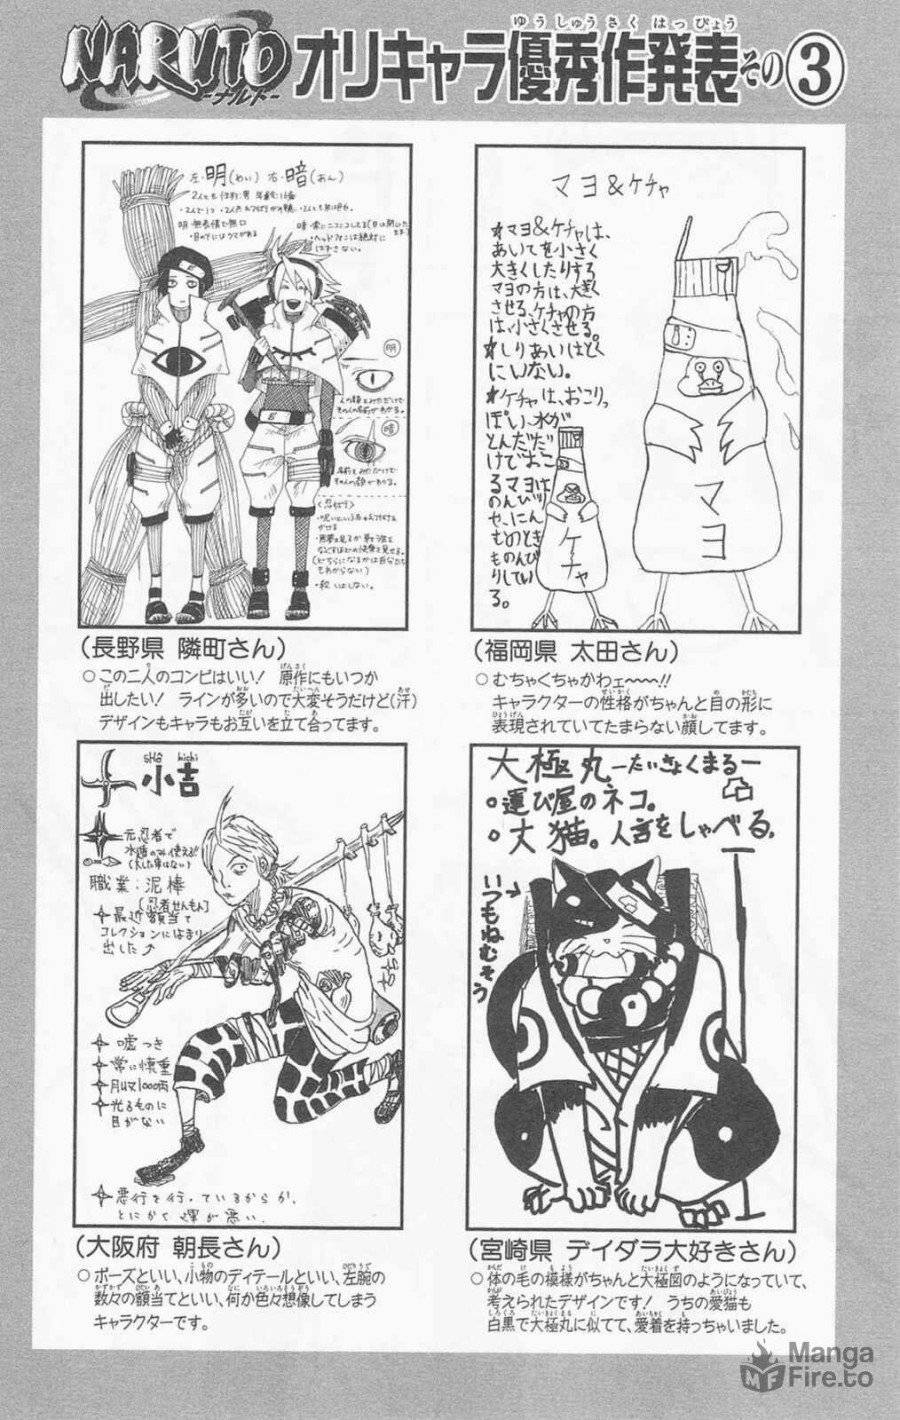 NARUTO
-ナルト-
オリキャラ優秀作発表その③
ゆうしゅうさくはっぴょう
左・明(めい) 右・暗(あん)
明
暗
(長野県 隣町さん)
○この二人のコンビはいい! 原作にもいつか
出したい! ラインが多いので大変そうだけど(汗)
デザインもキャラもお互いを立て合ってます。
マヨ&ケチャ
★マヨ&ケチャは、
あいてを小さく
大きくしたりする
マヨの方は、大きく
させる、ケチャの方
は、小さくさせる。
★しりあいはとく
にいない。
★ケチャは、おこりっ
ぽい、水が
とんだだ
けでおこ
る
マヨは
のんび
や、にん
むのとき
ものんび
りしてい
る。
ケチャ
マヨ
(福岡県 太田さん)
○むちゃくちゃかわェ〜〜〜!!
キャラクターの性格がちゃんと目の形に
表現されていてたまらない顔してます。
shô kichi
小吉
元忍者で
水遁のみ使える!
(大した事はない)
職業:泥棒
[忍者せんもん]
最近額当て
コレクションにはまり
出した
嘘つき
常に慎重
月収1000両
光るものに
目がない
悪行を行っているからか、
とにかく運が悪い。
(大阪府 朝長さん)
○ポーズといい、小物のディテールといい、左腕の
数々の額当てといい、何か色々想像してしまう
キャラクターです。
大極丸ーたいきょくまるー
○運び屋のネコ。
○大猫。人言をしゃべる。
いつもねむそう
(宮崎県 デイダラ大好きさん)
○体の毛の模様がちゃんと大極図のようになっていて、
考えられたデザインです! うちの愛猫も
白黒で大極丸に似てて、愛着を持っちゃいました。
MF
Manga
Fire.to